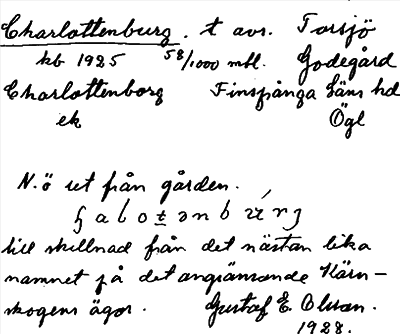 Charlottenburg. t avs. Torsjö
kb 1925 58/1000 mtl. Godegård
Charlottenborg Finspånga läns hd
ek Ögl
N. ö ut från gården.
till skillnad från det nästan lika
namnet på det angränsande Kärn-
skogens ägor. Gustaf E. Olsson.
1928.